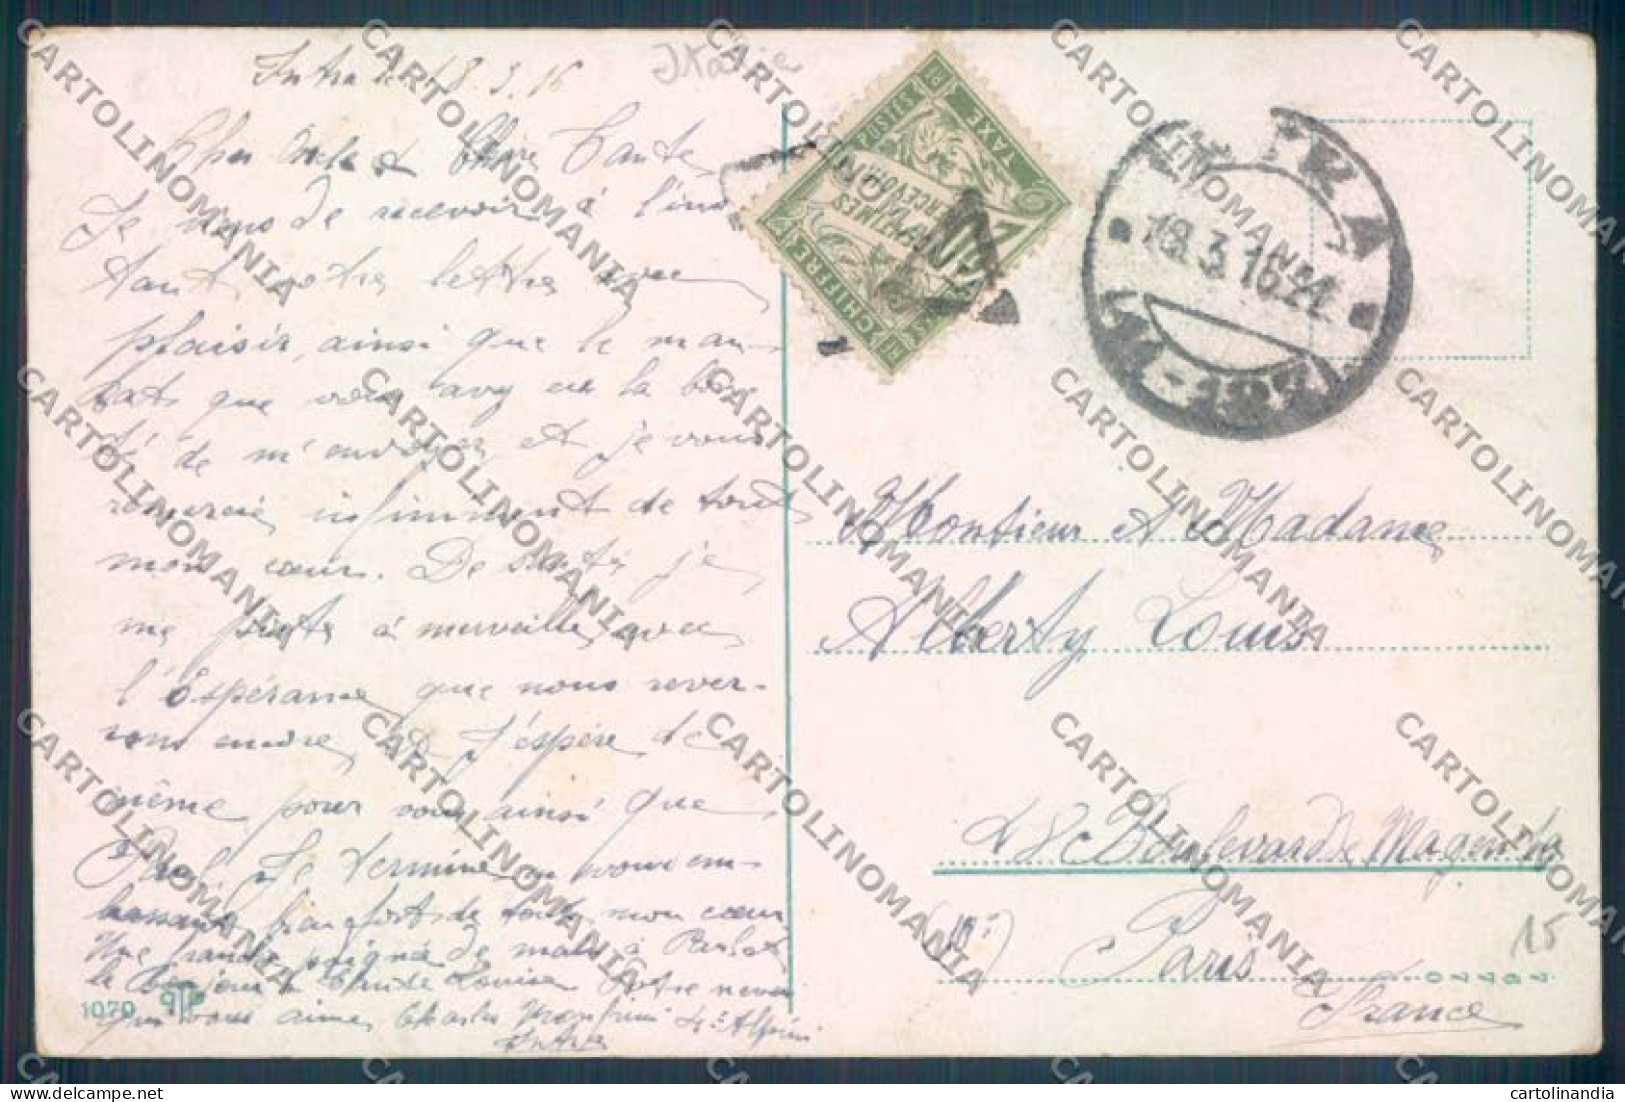 Intra le 18.3.16
Italie
Cher Oncle et Chère Tante
Je viens de recevoir à l'ins
tant votre lettre avec
plaisir, ainsi que le man-
dat que vous avez eu la bon
té de m'envoyer, et je vous
remercie infiniment de tout
mon cœur. De santé je
me porte à merveille, avec
l'Espérance que nous rever-
rons encore, et J'espère de
même pour vous ainsi que
Paul. Je termine en vous em-
brassant bien fort de tout mon cœur
Une grande poigné de main à Paul et
le bonjour à Tante Louise Votre neveu
qui vous aime, Charles 4e Alpini
Intra
1070
CHIFFRE
TAXE
POSTES
10
CENTIMES
À PERCEVOIR
T
INTRA
18.3.16 21
Monsieur et Madame
Alberty Louis
48 Boulevard de Magenta
(10e)
Paris
France
15
CARTOLINOMANIA
cartolinandia